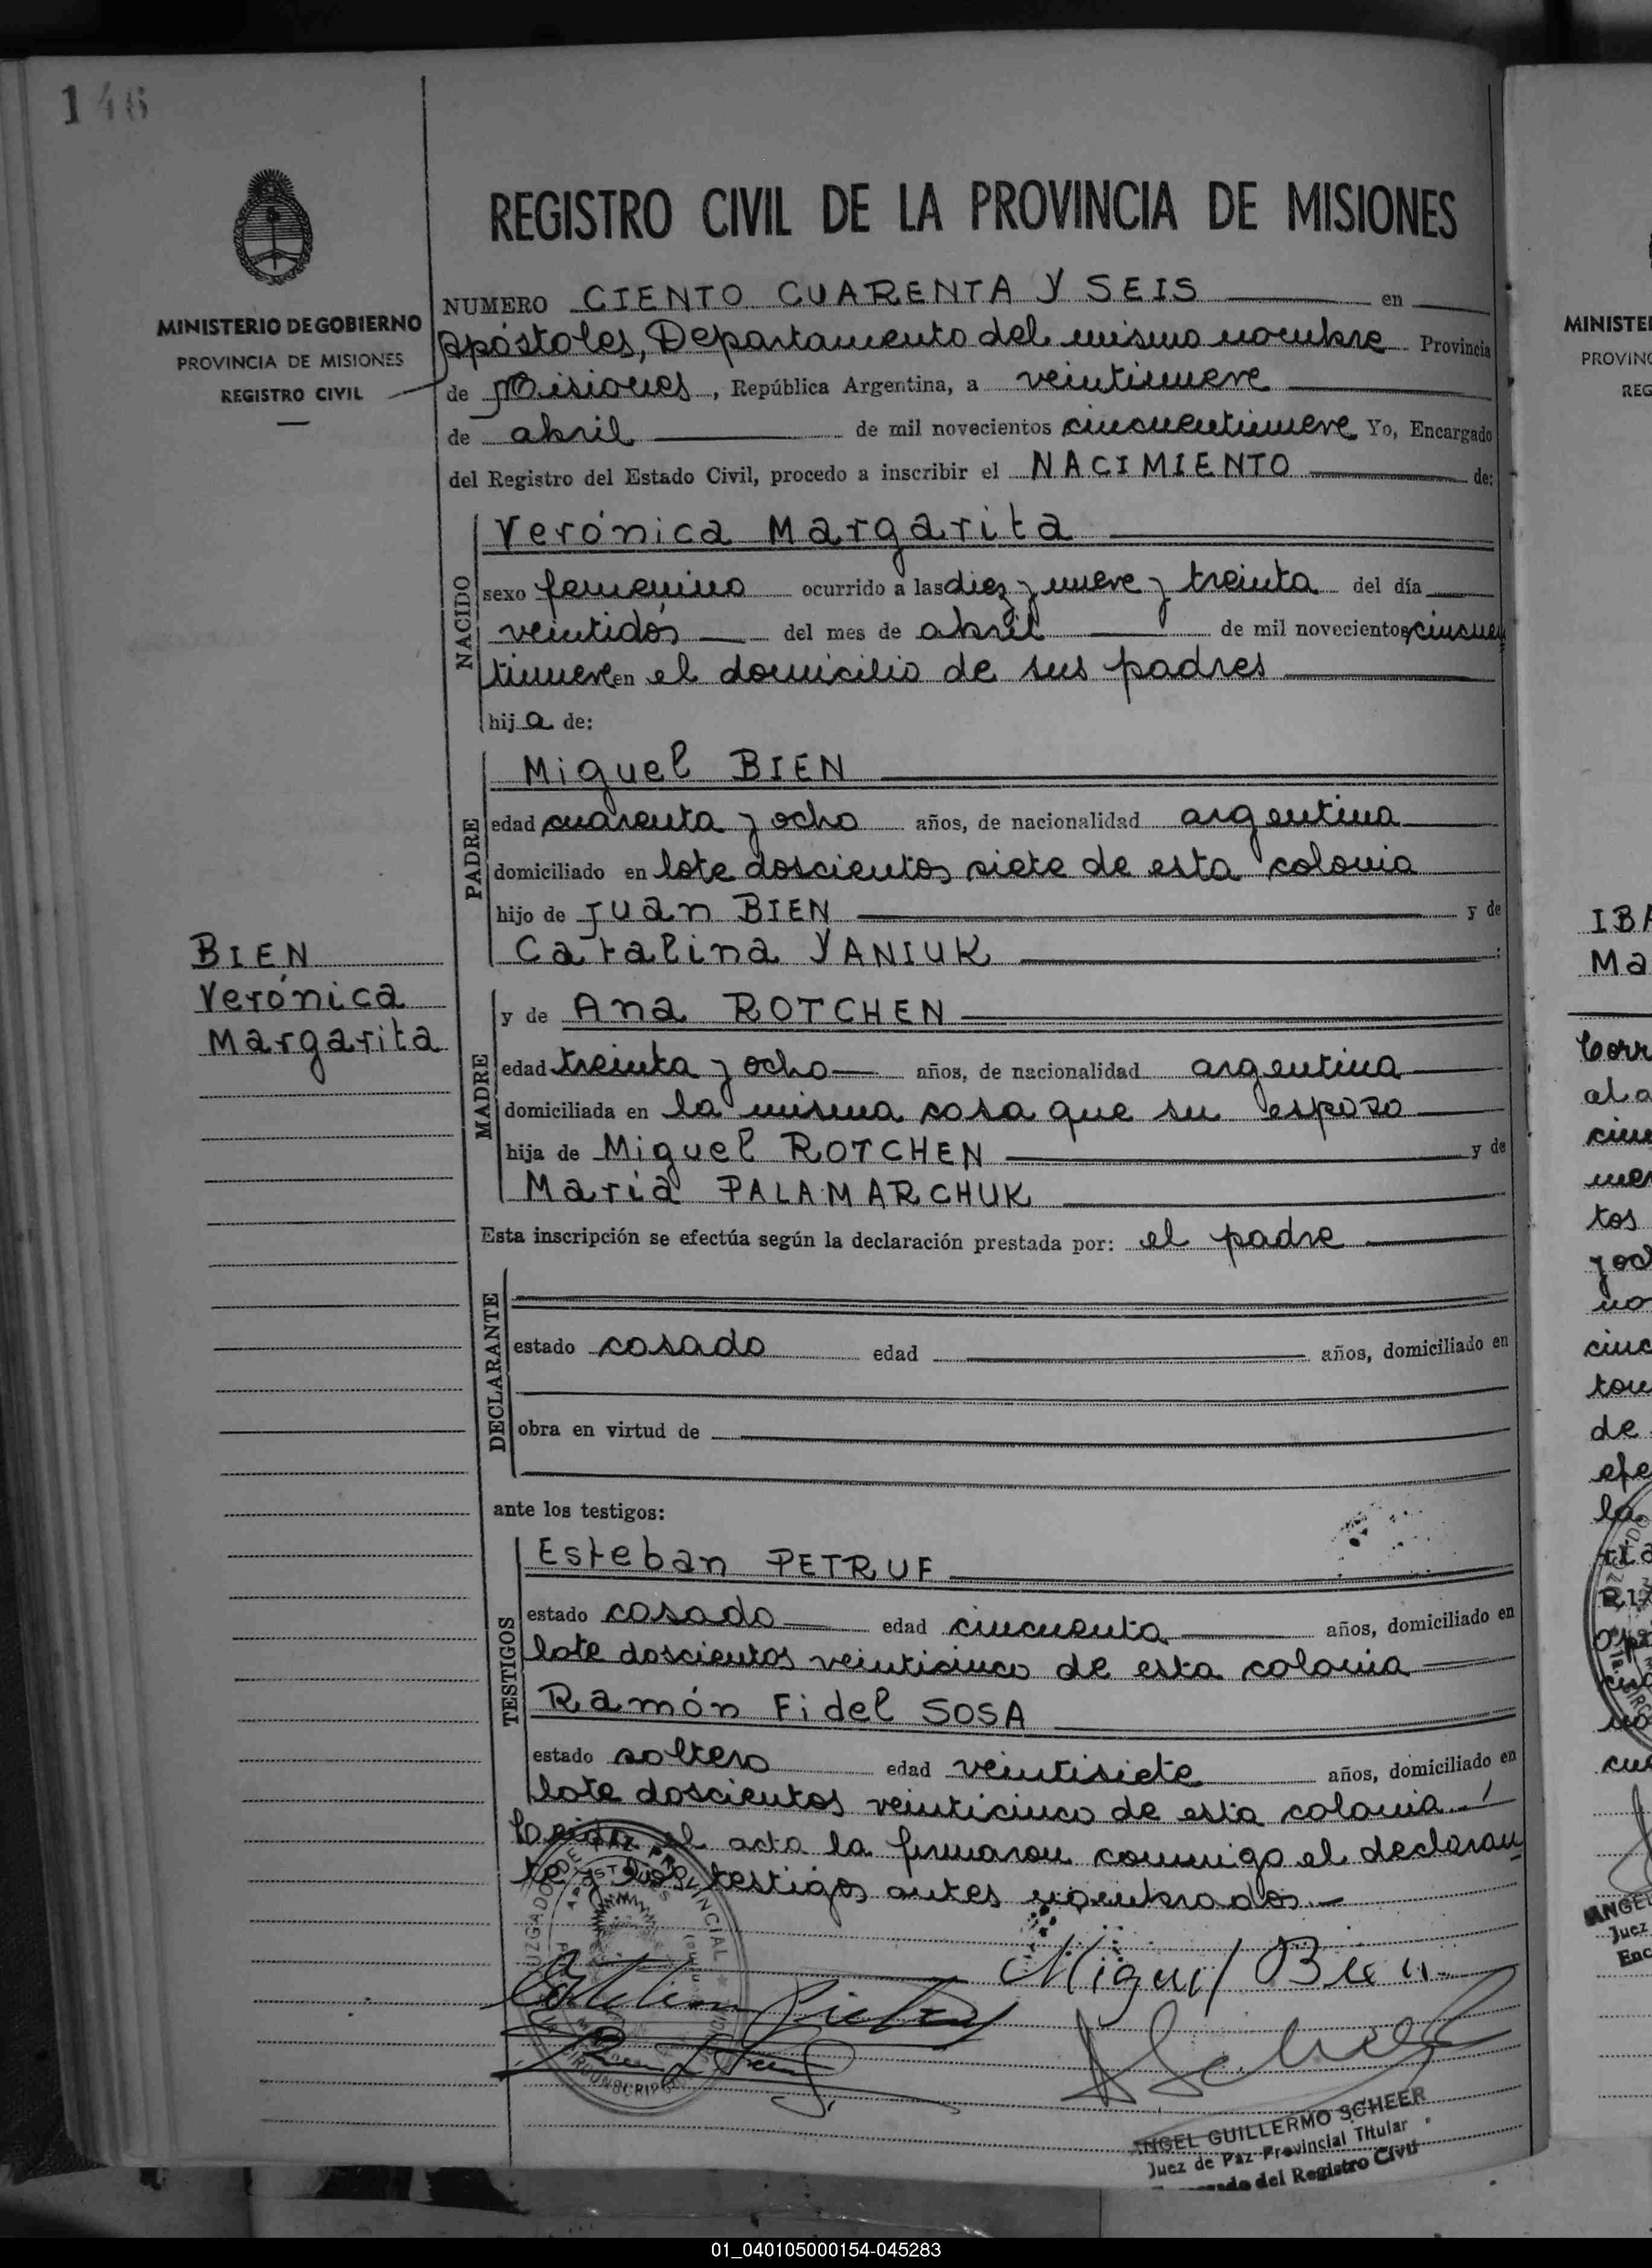 146
MINISTERIO DE GOBIERNO
PROVINCIA DE MISIONES
REGISTRO CIVIL
REGISTRO CIVIL DE LA PROVINCIA DE MISIONES
NUMERO CIENTO CUARENTA Y SEIS en
Apóstoles, Departamento del mismo nombre Provincia
de Misiones, República Argentina, a veintinueve
de abril de mil novecientos cincuentinueve Yo, Encargado
del Registro del Estado Civil, procedo a inscribir el NACIMIENTO de:
NACIDO
Verónica Margarita
sexo femenino ocurrido a las diez y nueve y treinta del día
veintidós del mes de abril de mil novecientos cincuen
tinueve en el domicilio de sus padres
hija de:
PADRE
Miguel BIEN
edad cuarenta y ocho años, de nacionalidad argentina
domiciliado en lote doscientos siete de esta colonia
hijo de Juan BIEN y de
Catalina YANIUK
BIEN
Verónica
Margarita
MADRE
y de Ana ROTCHEN
edad treinta y ocho años, de nacionalidad argentina
domiciliada en la misma casa que su esposo
hija de Miguel ROTCHEN y de
María PALAMARCHUK
Esta inscripción se efectúa según la declaración prestada por: el padre
DECLARANTE
estado casado edad años, domiciliado en
obra en virtud de
ante los testigos:
TESTIGOS
Esteban PETRUF
estado casado edad cincuenta años, domiciliado en
lote doscientos veinticinco de esta colonia
Ramón Fidel SOSA
estado soltero edad veintisiete años, domiciliado en
lote doscientos veinticinco de esta colonia.
Leida el acta la firmaron conmigo el declaran
te y los testigos antes nombrados.
Miguel Bien
ANGEL GUILLERMO SCHEER
Juez de Paz Provincial Titular
del Registro Civil
MINISTE
PROVINC
REG
IBA
Ma
Corr
al a
cinc
tos
y och
no
cinc
de
efe
la
ANGEL
Juez
Enc
01_040105000154-045283